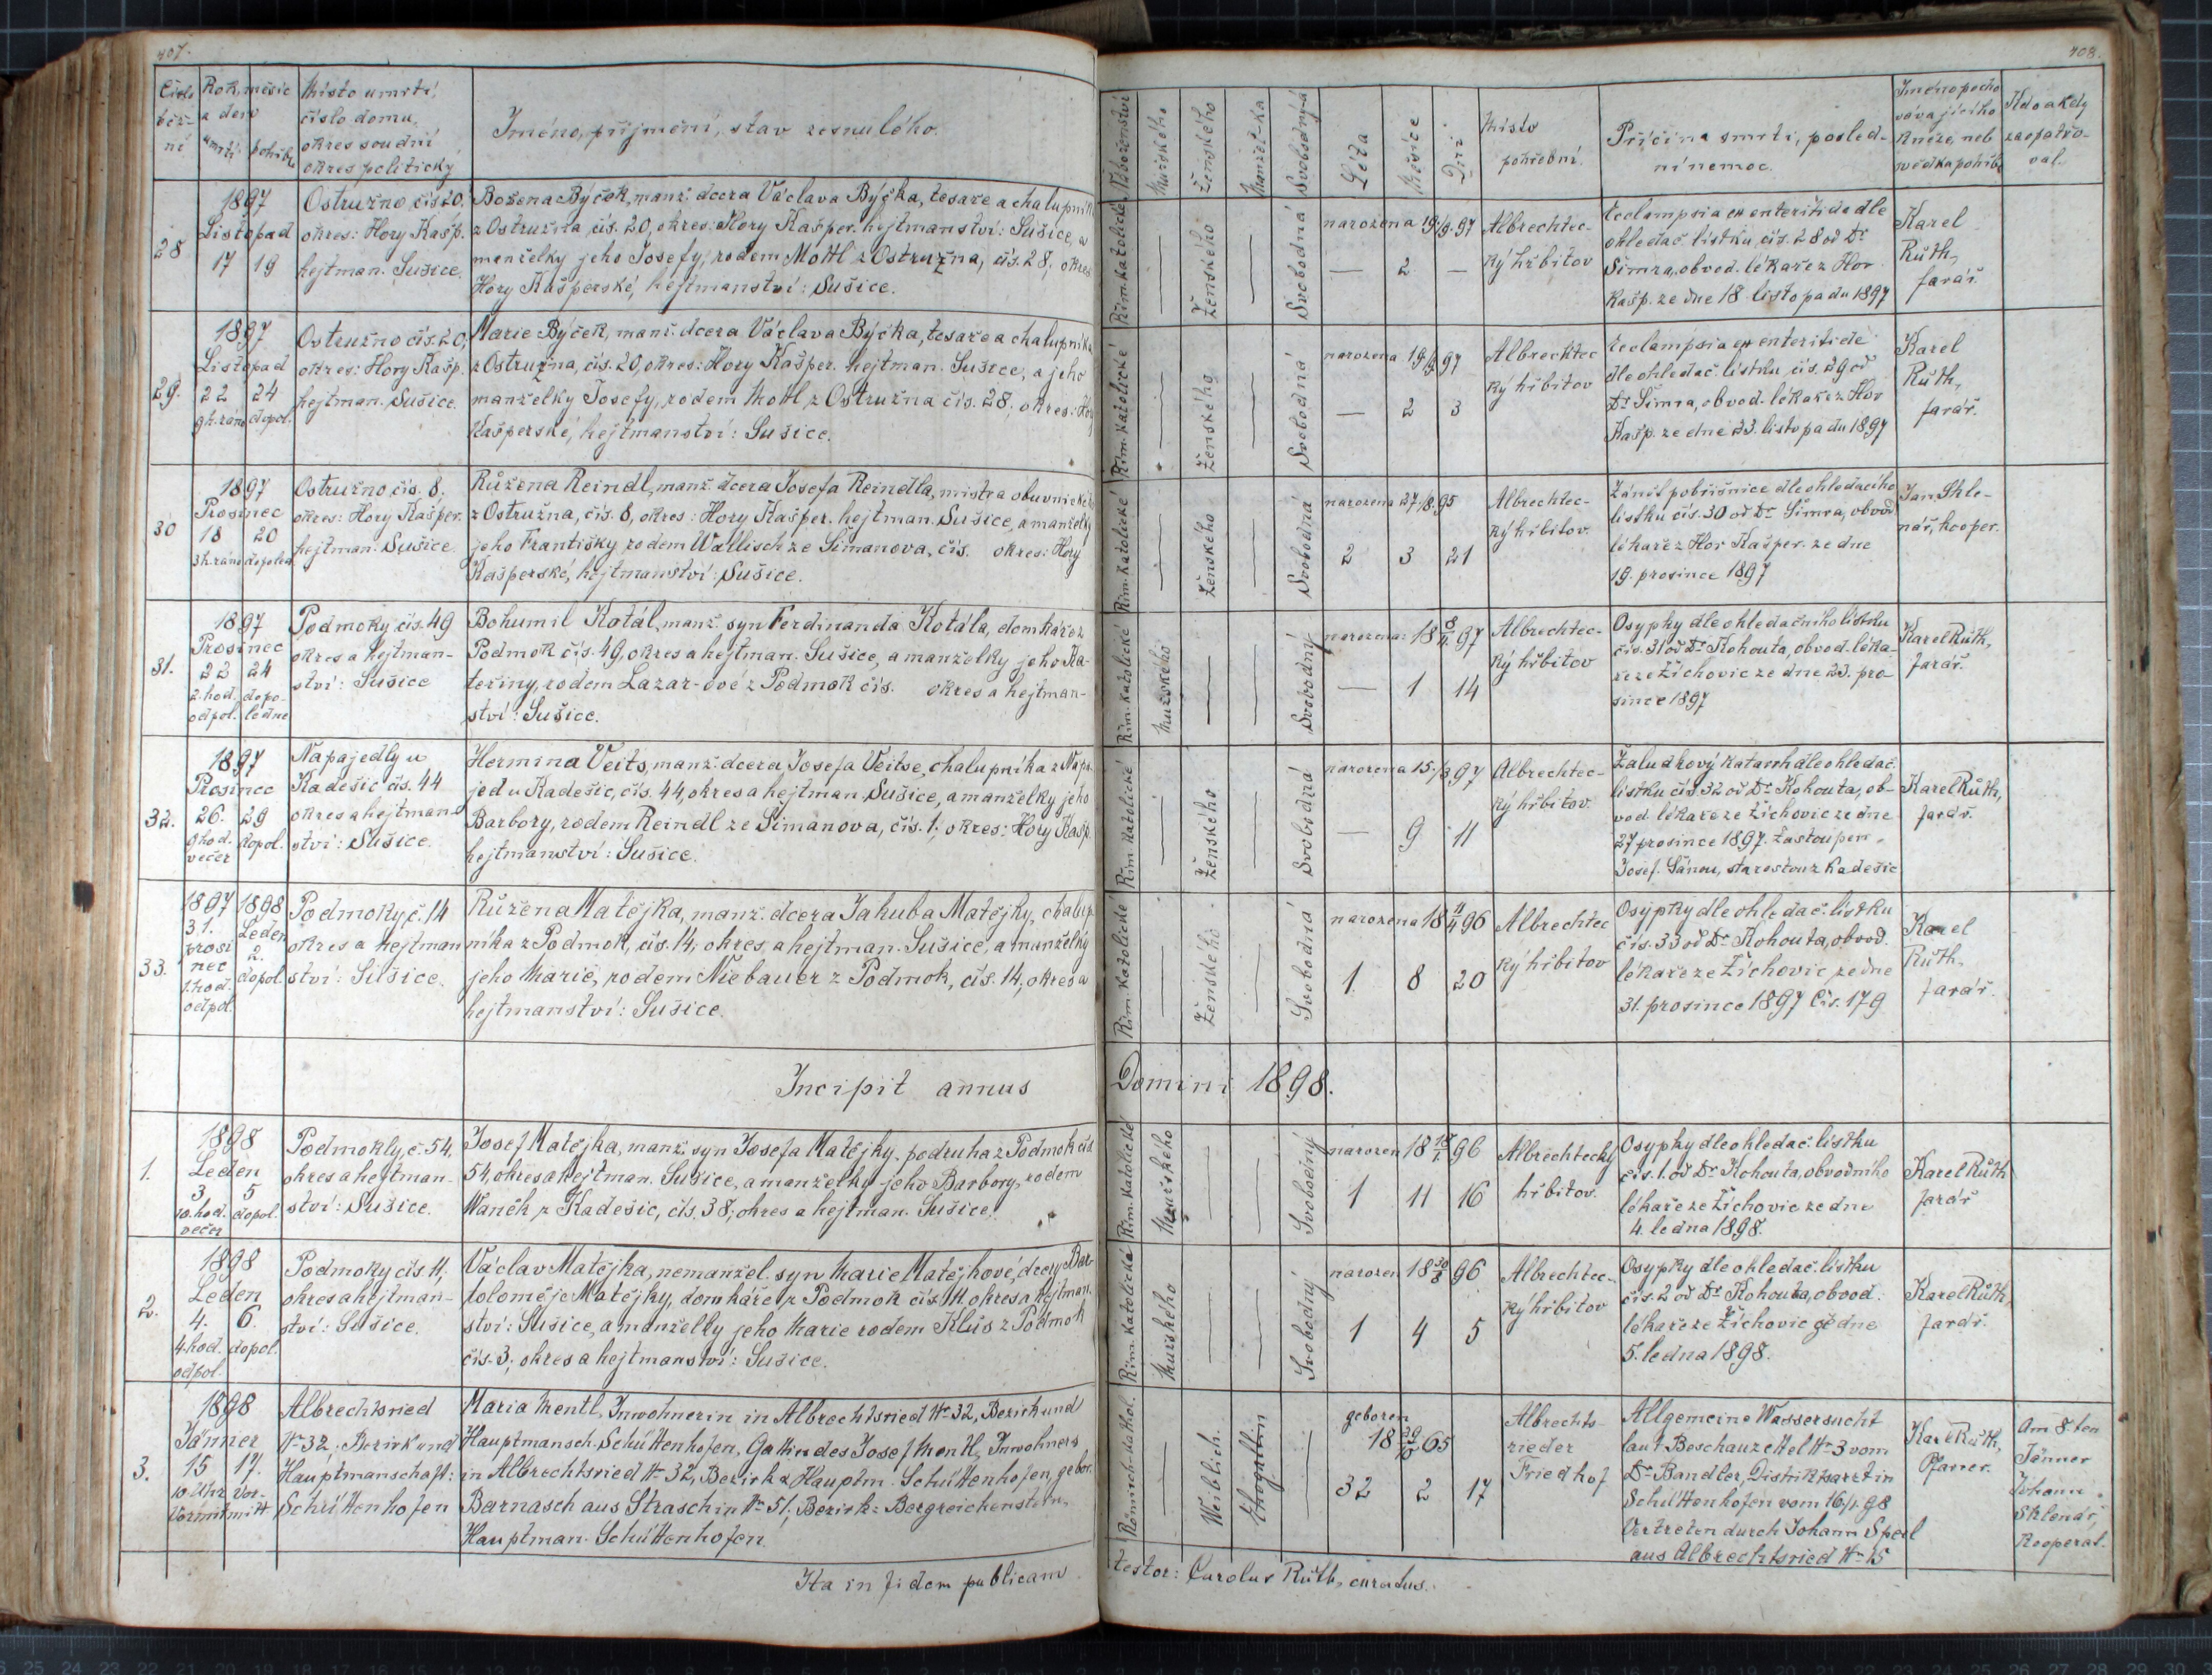 407.
Číslo běž-ní
Rok, měsíc a den
umrtí
pohřbu
Místo umrtí,
číslo domu,
okres soudní
okres politický
Jméno, příjmění, stav zesnulého.
28
1897
Listopad
17 19
Ostružno čís 20,
okres: Hory Kašp.
hejtman. Sušice.
Božena Býček, manž. dcera Václava Býčka, tesaře a chalupníka
z Ostružna, čís. 20, okres: Hory Kašper. hejtmanství: Sušice, a
manželky jeho Josefy, rodem Mottl z Ostružna, čís. 28, okres
Hory Kašperské, hejtmanství: Sušice.
29.
1897
Listopad
22 24
9 h. ráno dopol.
Ostružno čís. 20,
okres: Hory Kašp.
hejtman. Sušice.
Marie Býček, manž. dcera Václava Býčka, tesaře a chalupníka
z Ostružna, čís. 20, okres: Hory Kašper. hejtman. Sušice, a jeho
manželky Josefy, rodem Mottl z Ostružna čís. 28, okres: Hory
Kašperské, hejtmanství: Sušice.
30
1897
Prosinec
18 20
3 h. ráno dopoled
Ostružno čís. 8,
okres: Hory Kašper.
hejtman. Sušice
Růžena Reindl, manž. dcera Josefa Reindla, mistra obuvnického
z Ostružna, čís. 8, okres: Hory Kašper. hejtman. Sušice, a manželky
jeho Františky, rodem Wallisch ze Šimanova, čís. okres: Hory
Kašperské, hejtmanství: Sušice.
31.
1897
Prosinec
22 24
2. hod. dopo-
odpol. ledne
Podmoky čís. 49
okres a hejtman-
ství: Sušice
Bohumil Kotál, manž. syn Ferdinanda Kotála, domkáře z
Podmok čís. 49, okres a hejtman. Sušice, a manželky jeho Ka-
teřiny, rodem Lazar-ové z Podmok čís. okres a hejtman-
ství: Sušice.
32.
1897
Prosinec
26. 29
9 hod. dopol.
večer
Napajedly u
Kadešic čís. 44
okres a hejtman-
ství: Sušice.
Hermina Veits, manž. dcera Josefa Veitse, chalupníka z Napa-
jed u Kadešic, čís. 44, okres a hejtman. Sušice, a manželky jeho
Barbory, rodem Reindl ze Šimanova, čís. 1; okres: Hory Kašp.
hejtmanství: Sušice.
33.
1897 1898
31. Leden
prosi 2.
nec dopol.
1. hod.
odpol.
Podmoky č. 14
okres a hejtman
ství: Sušice.
Růžena Matějka, manž. dcera Jakuba Matějky, chalup-
níka z Podmok, čís. 14, okres, a hejtman. Sušice, a manželky
jeho Marie, rodem Niebauer z Podmok, čís. 14, okres a
hejtmanství: Sušice.
Incipit annus
1.
1898
Leden
3 5
10. hod. dopol.
večer
Podmokly, č. 54,
okres a hejtman-
ství: Sušice.
Josef Matějka, manž. syn Josefa Matějky, podruha z Podmok čís
54, okres a hejtman. Sušice, a manželky jeho Barbory, rodem
Waněk z Kadešic, čís. 38, okres a hejtman. Sušice.
2.
1898
Leden
4. 6.
4. hod. dopol.
odpol.
Podmoky čís 11,
okres a hejtman-
ství: Sušice.
Václav Matějka, nemanžel. syn Marie Matějkové, dcery Bar-
toloměje Matějky, domkáře z Podmok čís. 11. okres a hejtman-
ství: Sušice, a manželky jeho Marie rodem Klus z Podmok
čís. 3; okres a hejtmanství: Sušice.
3.
1898
Jänner
15 17.
10 Uhr Vor-
Vormit mitt
Albrechtsried
No 32, Bezirk und
Hauptmanschaft:
Schüttenhofen
Maria Mentl, Inwohnerin in Albrechtsried No 32, Bezirk und
Hauptmansch. Schüttenhofen, Gattin des Josef Mentl, Inwohners
in Albrechtsried No 32, Bezirk & Hauptm. Schüttenhofen, gebor.
Barnasch aus Straschin No 51; Bezirk: Bergreichenstein,
Hauptman. Schüttenhofen.
Ita in fidem publicam
408.
Náboženství
Mužského
Ženského
Manžel-ka
Svobodný-á
Léta
Měsíce
Dni
Místo
pohřební.
Příčina smrti, posled-
ní nemoc.
Jméno pocho
vávajícího
kněze, neb
svědka pohřbu
Kdo a kdy
zaopatřo-
val.
Řím. katolické
Ženského
Svobodná
narozena 19/9. 97
2
Albrechtec-
ký hřbitov
Eclampsia ex enteritide dle
ohledač. lístku, čís. 28 od Dr
Šimra, obvod. lékaře z Hor
Kašp. ze dne 18 listopadu 1897
Karel
Růth,
farář.
Řím. katolické
Ženského
Svobodná
narozena 19/9 97
2 3
Albrechtec
ký hřbitov
Eclampsia ex enteritide
dle ohledač. lístku, čís. 29 od
Dr Šimra, obvod. lékaře z Hor
Kašp. ze dne 23. listopadu 1897
Karel
Růth,
farář.
Řím. katolické
Ženského
Svobodná
narozena 27/8. 95
2 3 21
Albrechtec-
ký hřbitov.
Zánět pobřišnice dle ohledacího
lístku čís. 30 od Dr Šimra, obvod.
lékaře z Hor Kašper. ze dne
19. prosince 1897
Jan Skle-
nář, kooper.
Řím. katolické
Mužského
Svobodný
narozena: 18 8/11. 97
1 14
Albrechtec-
ký hřbitov
Osypky dle ohledačního lístku
čís. 31 od Dr Kohouta, obvod. léka-
ře ze Žichovic ze dne 23. pro-
since 1897
Karel Růth,
farář.
Řím. katolické
Ženského
Svobodná
narozena 15/3 97
9 11
Albrechtec-
ký hřbitov.
Žaludkový katarrh dle ohledač.
lístku čís. 32 od Dr Kohouta, ob-
vod. lékaře ze Žichovic ze dne
27 prosince 1897. Zastoupen
Josef. Šánou, starostou z Kadešic
Karel Růth,
farář.
Řím. katolické
Ženského
Svobodná
narozena 18 11/4 96
1 8 20
Albrechtec
ký hřbitov
Osypky dle ohledač. lístku
čís. 33 od Dr Kohouta, obvod.
lékaře ze Žichovic, ze dne
31. prosince 1897 Čís. 179
Karel
Růth,
farář.
Domini 1898.
Řím. katolické
Mužského
Svobodný
narozen 18 18/1. 96
1 11 16
Albrechtecký
hřbitov.
Osypky dle ohledač. lístku
čís. 1. od Dr Kohouta, obvodního
lékaře ze Žichovic ze dne
4. ledna 1898.
Karel Růth
farář
Řím. katolické
Mužského
Svobodný
narozen 18 30/8 96
1 4 5
Albrechtec-
ký hřbitov
Osypky dle ohledač. lístku
čís. 2 od Dr Kohouta, obvod.
lékaře ze Žichovic ze dne
5. ledna 1898.
Karel Růth,
farář.
Römisch-kathol.
Weiblich.
Ehegattin
geboren
18 29/10 65
32 2 17
Albrechts-
rieder
Friedhof
Allgemeine Wassersucht
laut Beschauzettel No 3 vom
Dr Bandler, Distriktsarzt in
Schüttenhofen vom 16/1. 98
Vertreten durch Johann Sperl
aus Albrechtsried No 15
Karl Růth,
Pfarrer.
Am 8. ten
Jänner
Johann
Sklenář,
Kooperat.
testor: Carolus Růth, curatus.